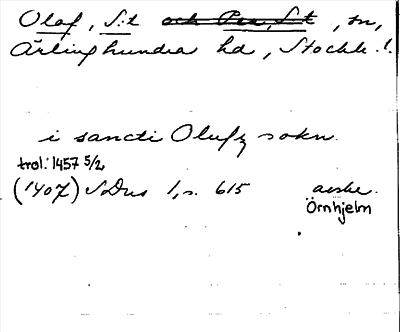 Olof, S:t och Per, S:t, sn,
Ärlinghundra hd, Stockh. l.
i sancti Olufz sokn
trol. 1457 5/2
(1407) SDns 1, s. 615 avskr.
Örnhjelm